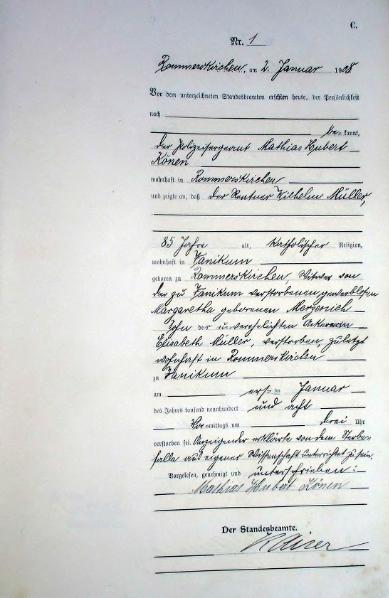 C.
Nr. 1
Rommerskirchen, am 2. Januar 1908
Vor dem unterzeichneten Standesbeamten erschien heute, der Persönlichkeit
nach
bekannt,
der Polizeisergeant Mathias Hubert
Könen
wohnhaft in Rommerskirchen
und zeigte an, daß der Rentner Wilhelm Müller,
85 Jahre alt, katholischer Religion,
wohnhaft in Vanikum
geboren zu Rommerskirchen Witwer von
der zu Vanikum verstorbenen gewerblosen
Margaretha geborenen
Sohn der unverehelichten Ackererin
Elisabeth Müller, verstorben, zuletzt
wohnhaft in Rommerskirchen
zu Vanikum
am ersten Januar
des Jahres tausend neunhundert und acht
Vormittags um drei Uhr
verstorben sei. Anzeigender erklärte von dem Sterbe-
falle aus eigener Wissenschaft unterrichtet zu sein.
Vorgelesen, genehmigt und unterschrieben:
Mathias Hubert Könen
Der Standesbeamte.